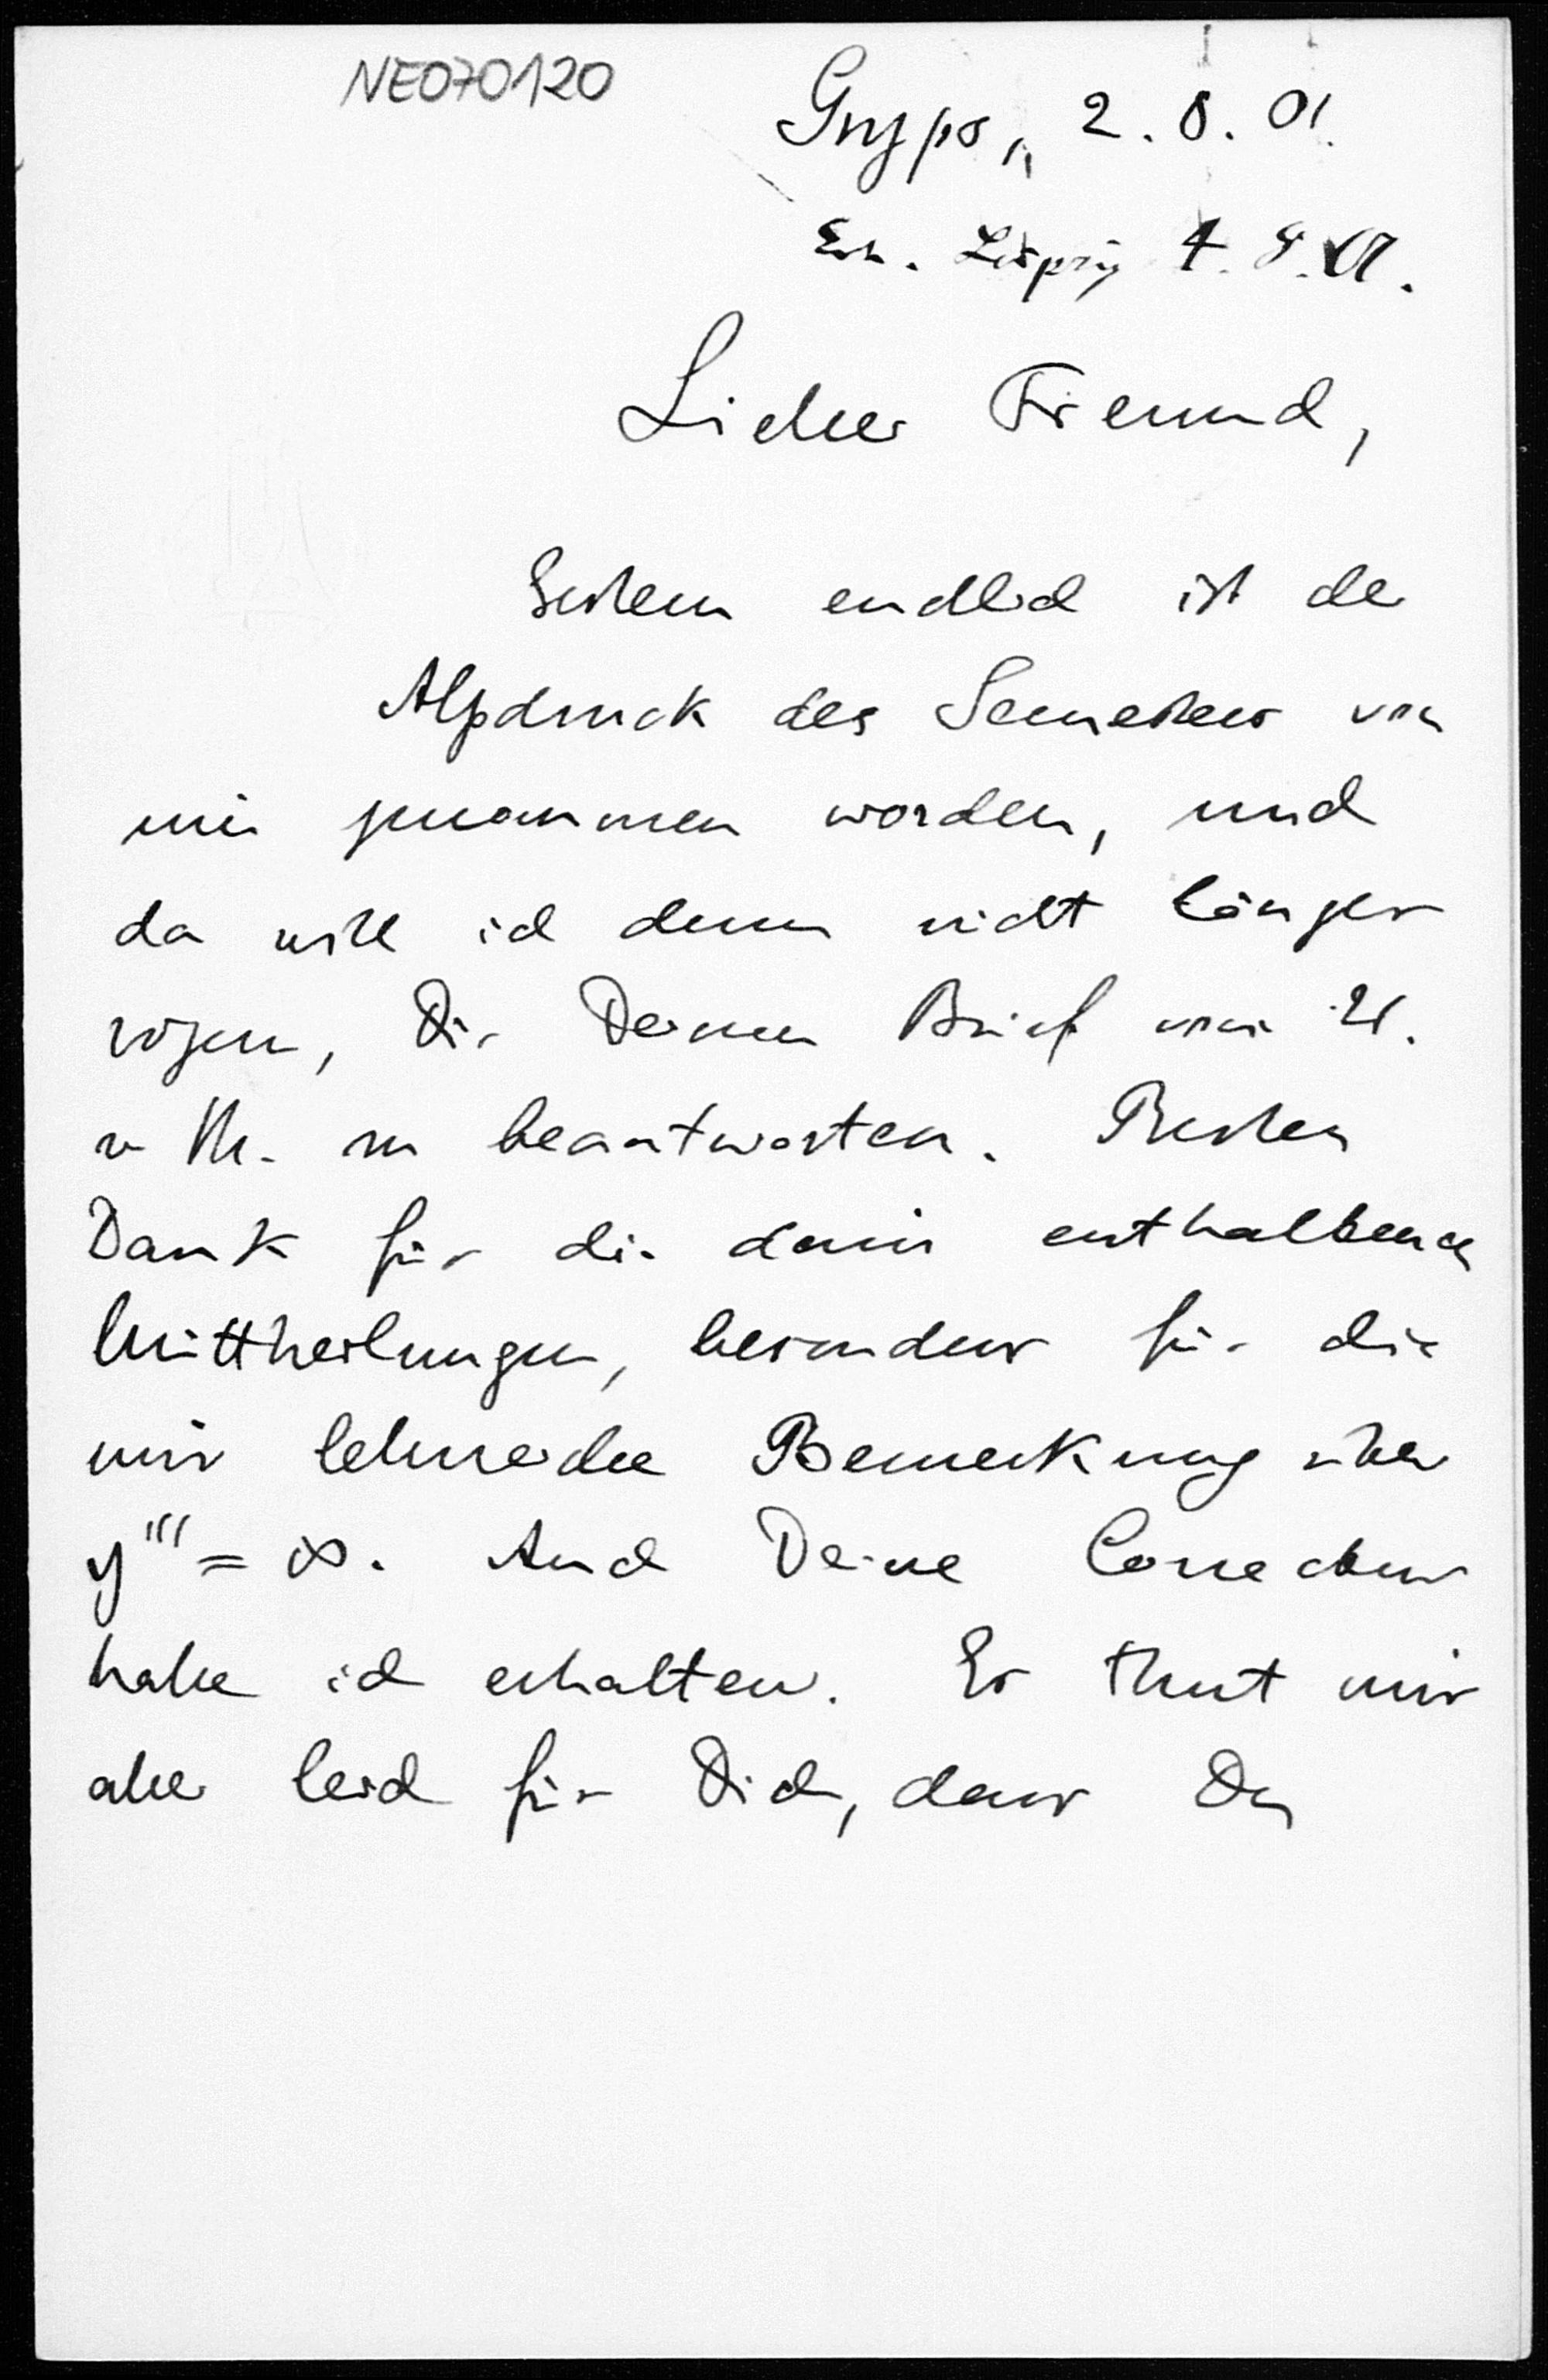 NE070120
Gryps, 2. 8. 01.
Erh. Leipzig 4. 8. 01.
Lieber Freund,
Gestern endlich ist der
Alpdruck des Semesters von
mir genommen worden, und
da will ich denn nicht länger
zögern, Dir Deinen Brief vom 21.
v. M. zu beantworten. Besten
Dank für die darin enthaltenen
Mittheilungen, besonders für die
mir lehrreiche Bemerkung über
y''' = ∞. Auch Deine Correctur
habe ich erhalten. Es thut mir
aber leid für Dich, dass Du